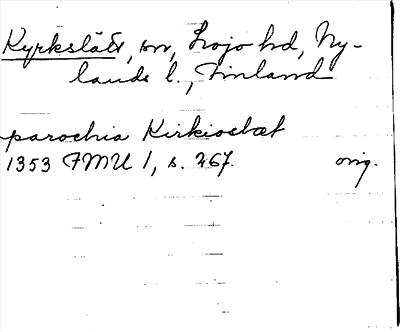 Kyrkslätt, sn, Lojo hd, Ny-
lands l., Finland
parochia Kirkioslæt
1353 FMU 1, s. 267. orig.